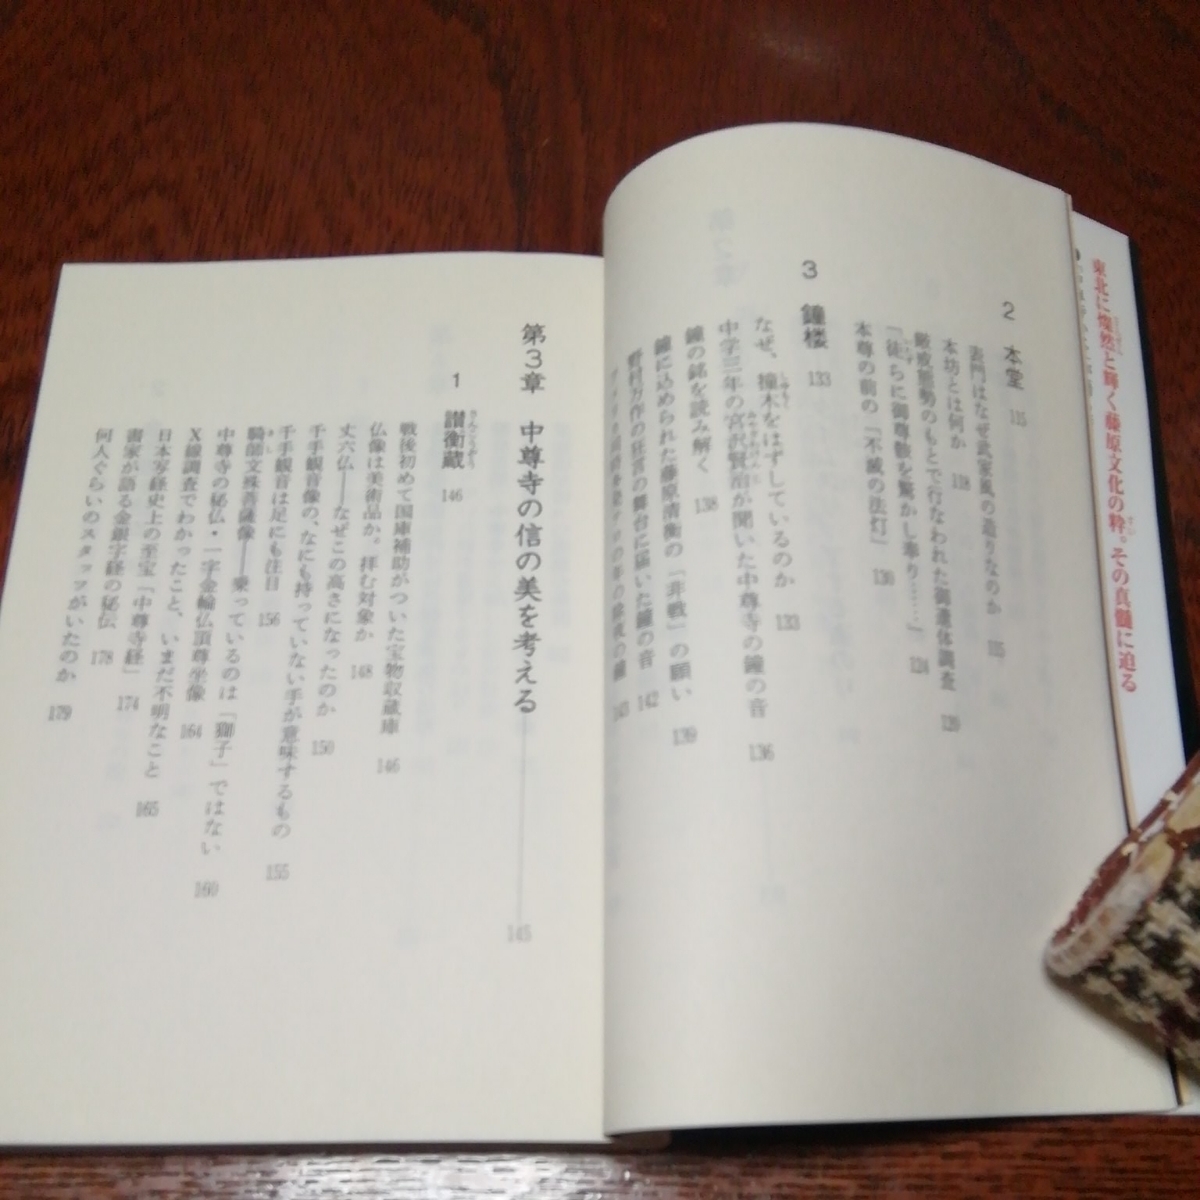 東北に燦然と輝く藤原文化の粋。その真髄に迫る
2 本堂 115
表門はなぜ武家風の造りなのか 115
本坊とは何か 118
厳戒態勢のもとで行なわれた御遺体調査 120
「徒らに御尊骸を驚かし奉り……」 124
本尊の前の「不滅の法灯」 130
3 鐘楼 133
なぜ、撞木をはずしているのか 133
中学三年の宮沢賢治が聞いた中尊寺の鐘の音 136
鐘の銘を読み解く 138
鐘に込められた藤原清衡の「非戦」の願い 139
野村万作の狂言の舞台に届いた鐘の音 142
143
第3章 中尊寺の信の美を考える 145
1 讃衡蔵 146
戦後初めて国庫補助がついた宝物収蔵庫 146
仏像は美術品か。拝む対象か 148
丈六仏――なぜこの高さになったのか 150
千手観音像の、なにも持っていない手が意味するもの 155
千手観音は足にも注目 156
騎師文殊菩薩像――乗っているのは「獅子」ではない 160
中尊寺の秘仏・一字金輪仏頂尊坐像 164
X線調査でわかったこと、いまだ不明なこと 165
日本写経史上の至宝「中尊寺経」 174
書家が語る金銀字経の秘伝 178
何人ぐらいのスタッフがいたのか 179